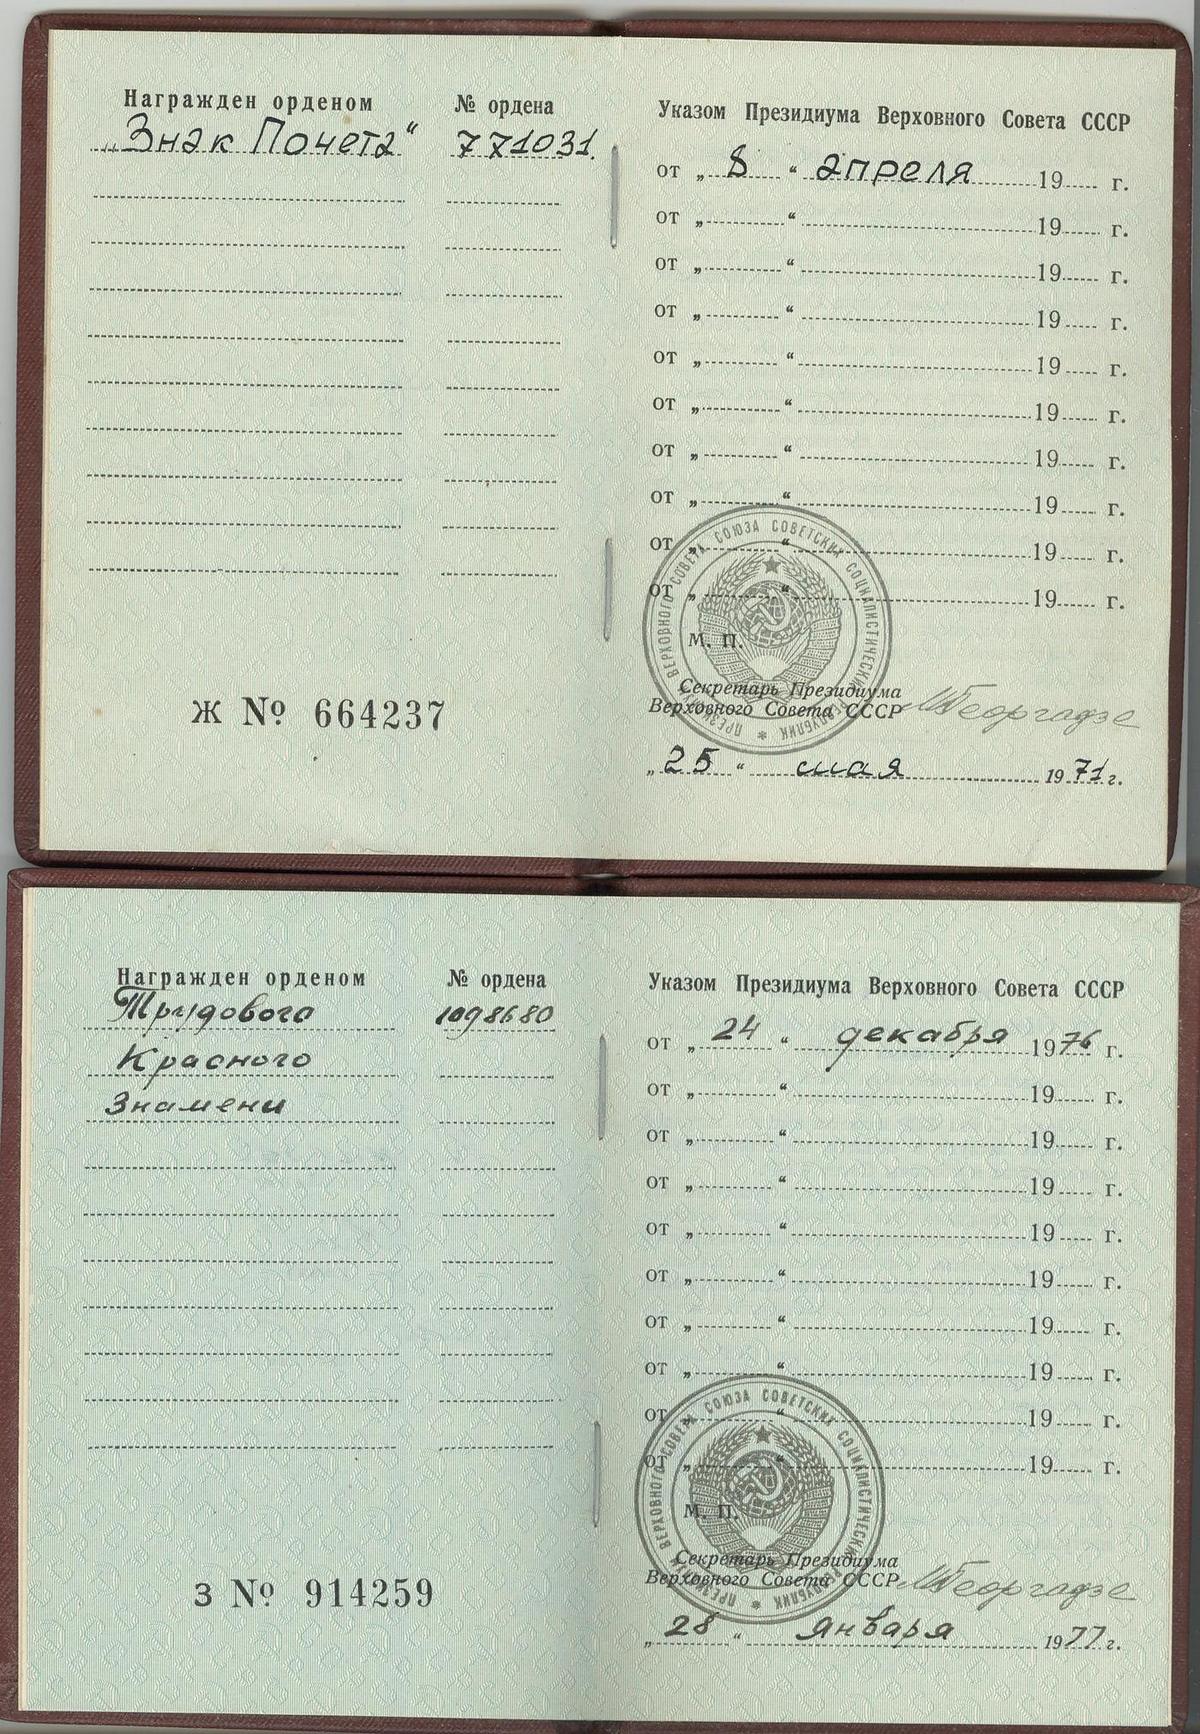 Награжден орденом № ордена
„Знак Почета“ 771031.
Ж № 664237
Указом Президиума Верховного Совета СССР
от „ 8 “ апреля 19 г.
от „ “ 19 г.
от „ “ 19 г.
от „ “ 19 г.
от „ “ 19 г.
от „ “ 19 г.
от „ “ 19 г.
от „ “ 19 г.
от „ “ 19 г.
от „ “ 19 г.
ПРЕЗИДИУМ ВЕРХОВНОГО СОВЕТА СОЮЗА СОВЕТСКИХ СОЦИАЛИСТИЧЕСКИХ РЕСПУБЛИК
М. П.
Секретарь Президиума
Верховного Совета СССР МГеоргадзе
„ 25 “ мая 1971 г.
Награжден орденом № ордена
Трудового 1098680
Красного
Знамени
З № 914259
Указом Президиума Верховного Совета СССР
от „ 24 “ декабря 1976 г.
от „ “ 19 г.
от „ “ 19 г.
от „ “ 19 г.
от „ “ 19 г.
от „ “ 19 г.
от „ “ 19 г.
от „ “ 19 г.
от „ “ 19 г.
от „ “ 19 г.
ПРЕЗИДИУМ ВЕРХОВНОГО СОВЕТА СОЮЗА СОВЕТСКИХ СОЦИАЛИСТИЧЕСКИХ РЕСПУБЛИК
М. П.
Секретарь Президиума
Верховного Совета СССР МГеоргадзе
„ 28 “ января 1977 г.